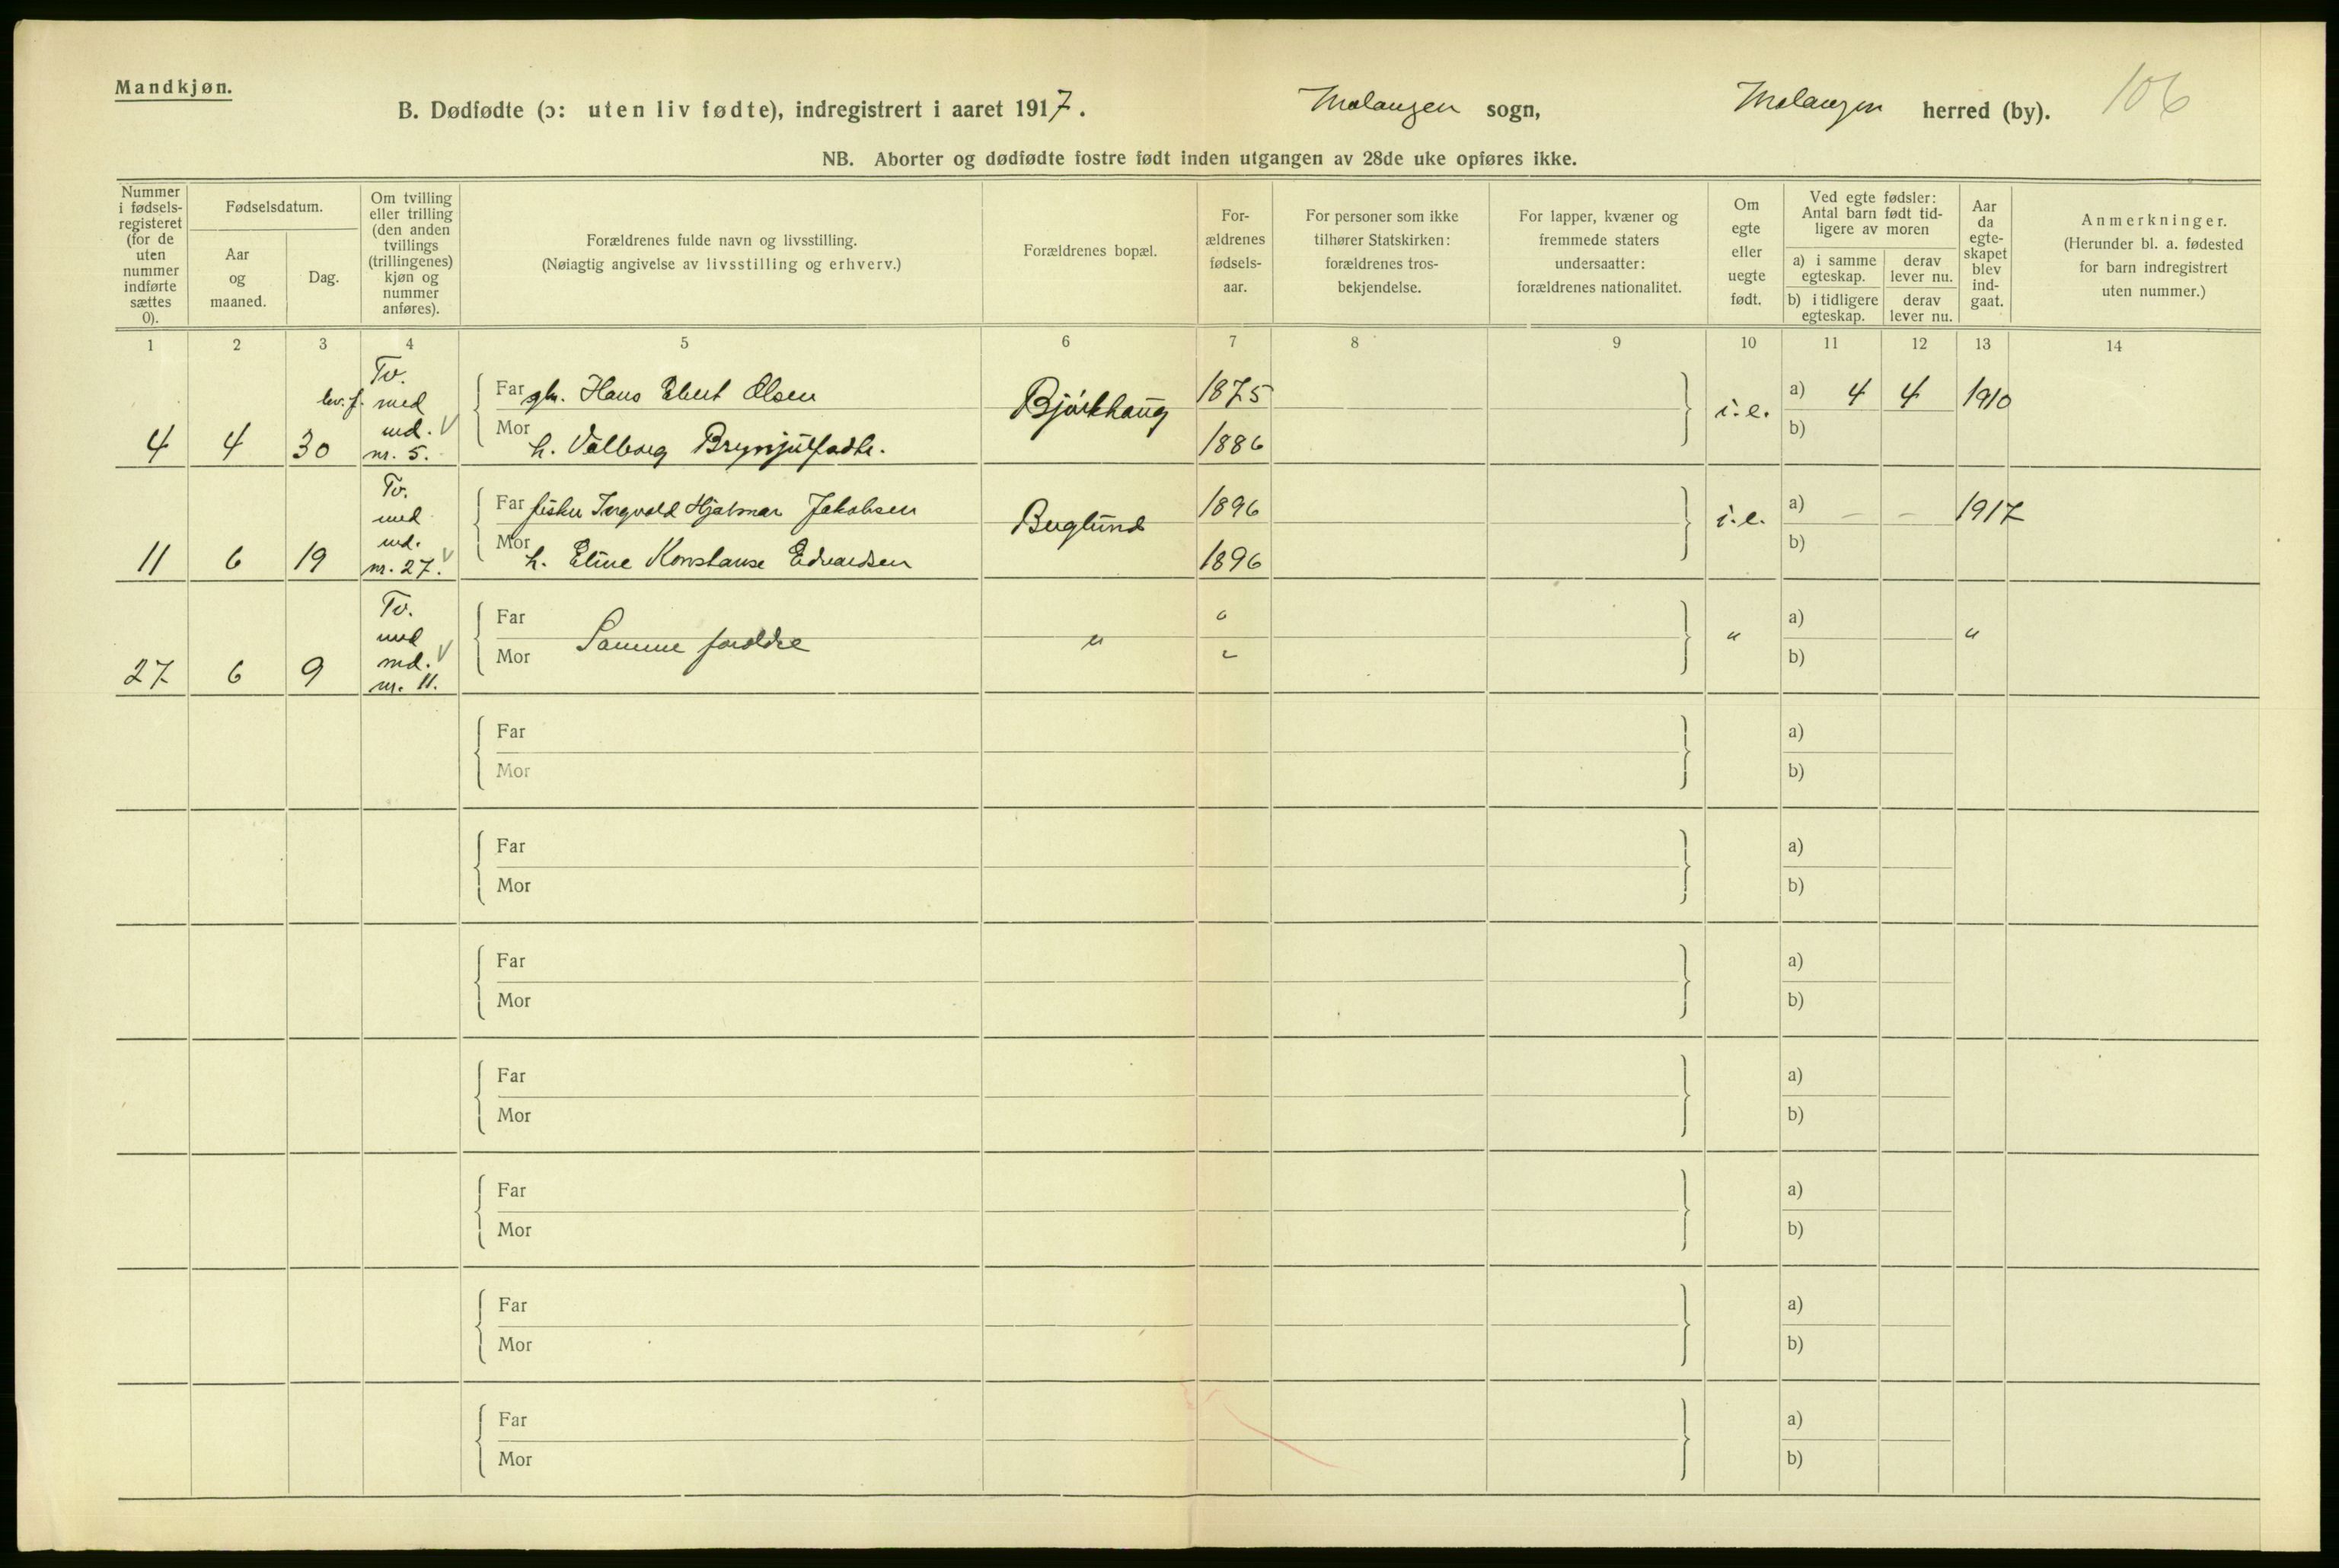 Mandkjøn.
B. Dødfødte (ɔ: uten liv fødte), indregistrert i aaret 1917. Malangen sogn, Malangen herred (by). 106
NB. Aborter og dødfødte fostre født inden utgangen av 28de uke opføres ikke.
Nummer
i fødsels-
registeret
(for de
uten
nummer
indførte
sættes
0).
Fødselsdatum.
Aar
og
maaned.
Dag.
Om tvilling
eller trilling
(den anden
tvillings
(trillingenes)
kjøn og
nummer
anføres).
Forældrenes fulde navn og livsstilling.
(Nøiagtig angivelse av livsstilling og erhverv.)
Forældrenes bopæl.
For-
ældrenes
fødsels-
aar.
For personer som ikke
tilhører Statskirken:
forældrenes tros-
bekjendelse.
For lapper, kvæner og
fremmede staters
undersaatter:
forældrenes nationalitet.
Om
egte
eller
uegte
født.
Ved egte fødsler:
Antal barn født tid-
ligere av moren
a) i samme
egteskap.
derav
lever nu.
b) i tidligere
egteskap.
derav
lever nu.
Aar
da
egte-
skapet
blev
ind-
gaat.
Anmerkninger.
(Herunder bl. a. fødested
for barn indregistrert
uten nummer.)
1 2 3 4 5 6 7 8 9 10 11 12 13 14
4 4 30
Tv.
lev. f. med
md. V
nr. 5.
Far gbr. Hans Ebert Olsen
Mor
h. Valborg Brynjulfsdtr.
Bjørkhaug
1875
1886
i.e.
a) 4 4 1910
b)
11 6 19
Tv.
med
md.
nr. 27. V
Far fisker Ingvald Hjalmar Jakobsen
Mor
h. Eline Konstanse Edvardsen
Berglund
1896
1896
i.e.
a) – – 1917
b)
27 6 9
Tv.
med
md. V
nr. 11.
Far
Samme foreldre
Mor
"
"
"
"
a)
"
b)
Far
Mor
a)
b)
Far
Mor
a)
b)
Far
Mor
a)
b)
Far
Mor
a)
b)
Far
Mor
a)
b)
Far
Mor
a)
b)
Far
Mor
a)
b)